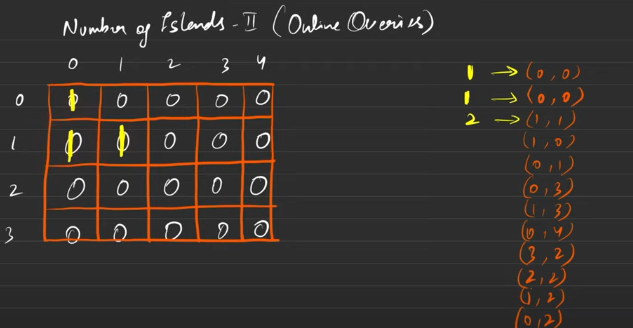 Number of Islands - II (Online Queries)
0 1 2 3 4
0 0 0 0 0 0
1 0 0 0 0 0
2 0 0 0 0 0
3 0 0 0 0 0
1 → (0,0)
1 → (0,0)
2 → (1,1)
(1,0)
(0,1)
(0,3)
(1,3)
(0,4)
(3,2)
(2,2)
(1,2)
(0,2)